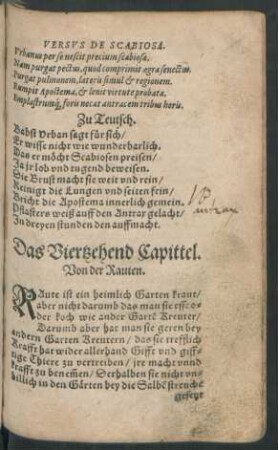 VERSVS DE SCABIOSA.
Vrbanus per se nescit precium scabiosæ.
Nam purgat pectus, quod comprimit ægra senectus.
Purgat pulmonem, lateris simul & regionem.
Rumpit Apostema, & lenit virtute probata.
Implastrumq́; foris necat antracem tribus horis.
Zu Teutsch.
Babst Vrban sagt für sich/
Er wisse nicht wie wunderbarlich.
Das er möcht Scabiosen preisen/
Ja jr lob vnd tugend beweisen.
Sie Brust macht sie weit vnd rein/
Reinigt die Lungen vnd seiten fein/
Bricht die Apostema innerlich gemein.
Pflasters weiß auff den Antrax gelacht/
In dreyen stunden den auffmacht.
Das Viertzehend Capittel.
Von der Rauten.
RAute ist ein heimlich Garten kraut/
aber nicht darumb das man sie esse
der koch wie ander Gartē Kreuter/
Darumb aber hat man sie geren bey
andern Garten Kreutern/ das sie trefflich
Krafft hat wider allerhand Gifft vnd giff-
tige Thiere zu vertreiben/ jre macht vnnd
krafft zu benemē/ Derhalben sie nicht vn-
billich in den Gärten bey die Salbē streuche
gesetzt